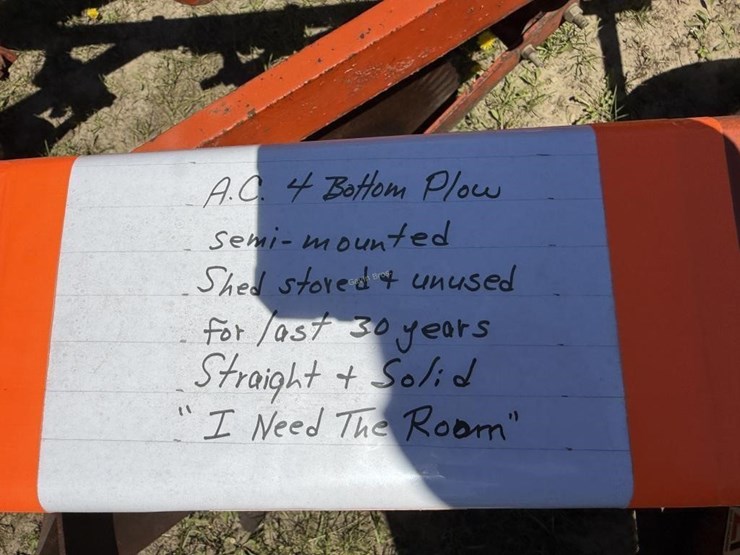 A.C. 4 Bottom Plow
semi-mounted
Shed stored + unused
for last 30 years
Straight + Solid
"I Need The Room"